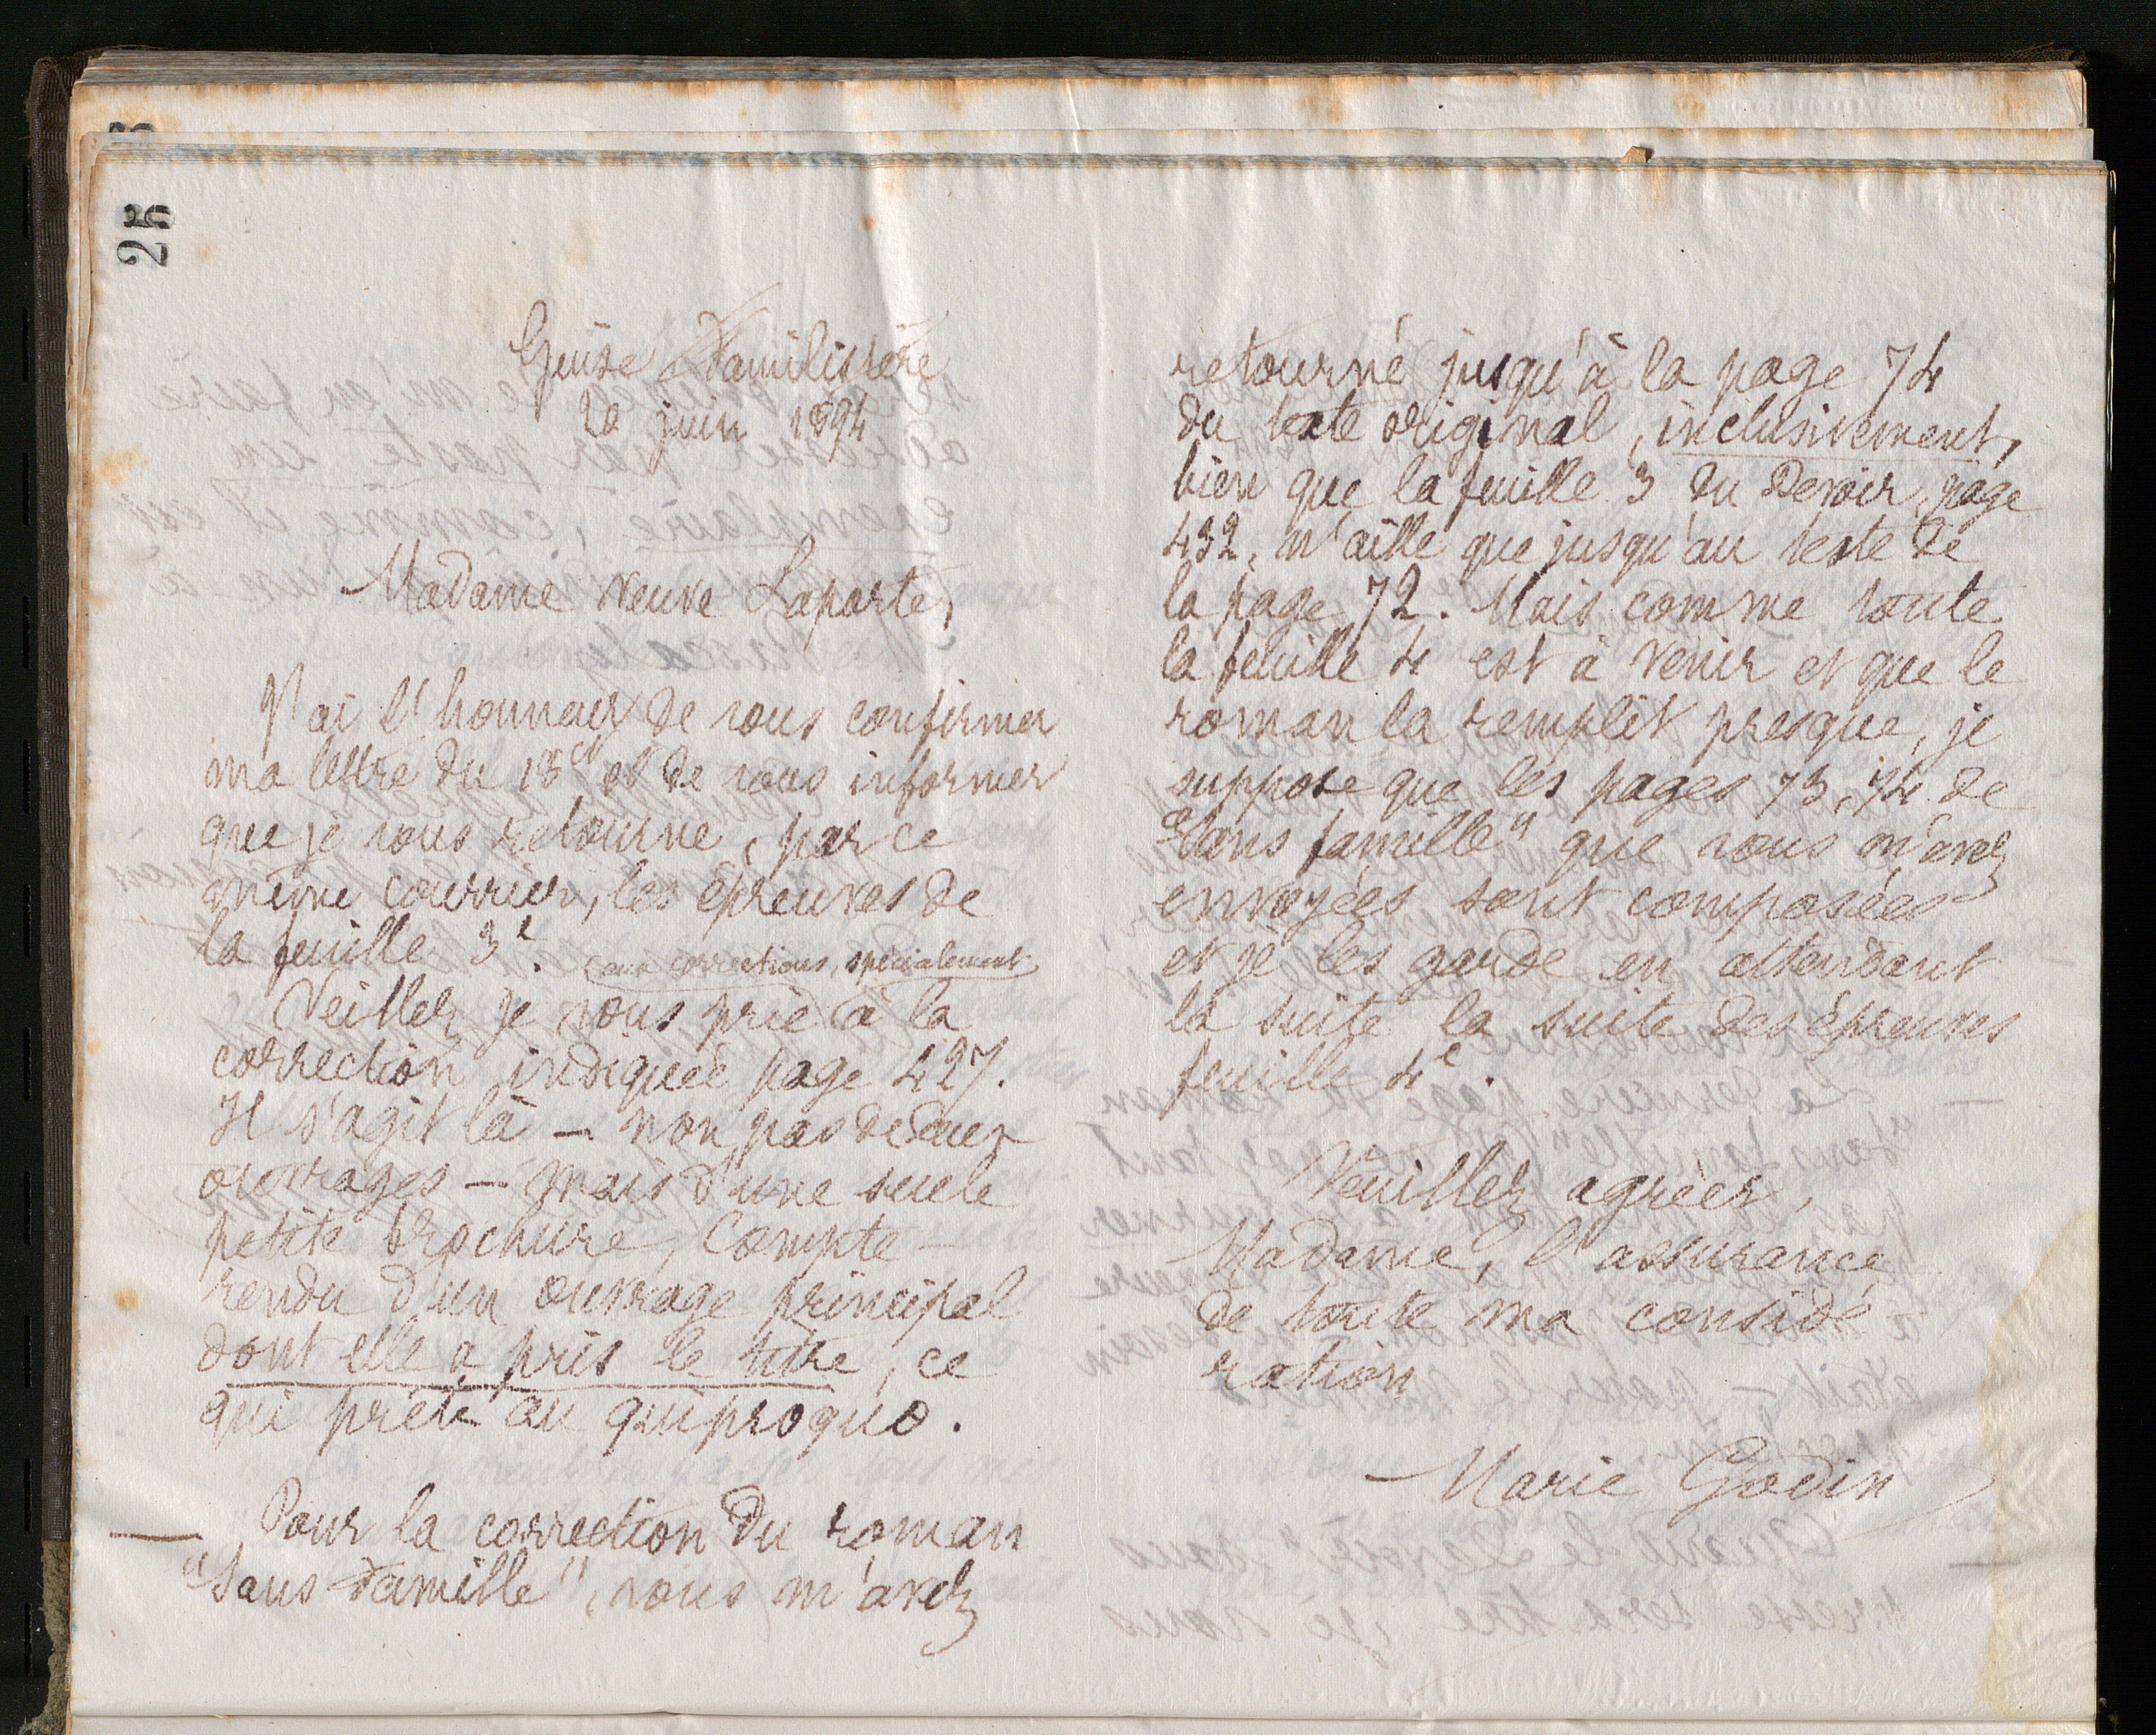 25
Guise Familistère
20 juin 1894
Madame veuve Laporte,
J'ai l'honneur de vous confirmer
ma lettre du 18 ct et de vous informer
que je vous retourne, par ce
même courrier, les épreuves de
la feuille 3e.
aux corrections, spécialement
Veillez je vous prie à la
correction indiquée page 427.
Il s'agit là – non pas de deux
ouvrages – mais d'une seule
petite brochure, Compte-
rendu d'un ouvrage principal
dont elle a pris le titre, ce
qui prête au quiproquo.
— Pour la correction du roman
"Sans Famille", vous m'avez
retourné jusqu'à la page 74
du texte original, inclusivement,
bien que la feuille 3 du Devoir, page
432, n'aille que jusqu'au texte de
la page 72. Mais comme toute
la feuille 4 est à venir et que le
roman la remplit presque, je
suppose que les pages 73, 74 de
"Sans famille" que vous m'avez
envoyées sont composées
et je les garde en attendant
la suite la suite des épreuves
feuille 4e.
Veuillez agréer,
Madame, l'assurance
de toute ma considé-
ration
Marie Godin